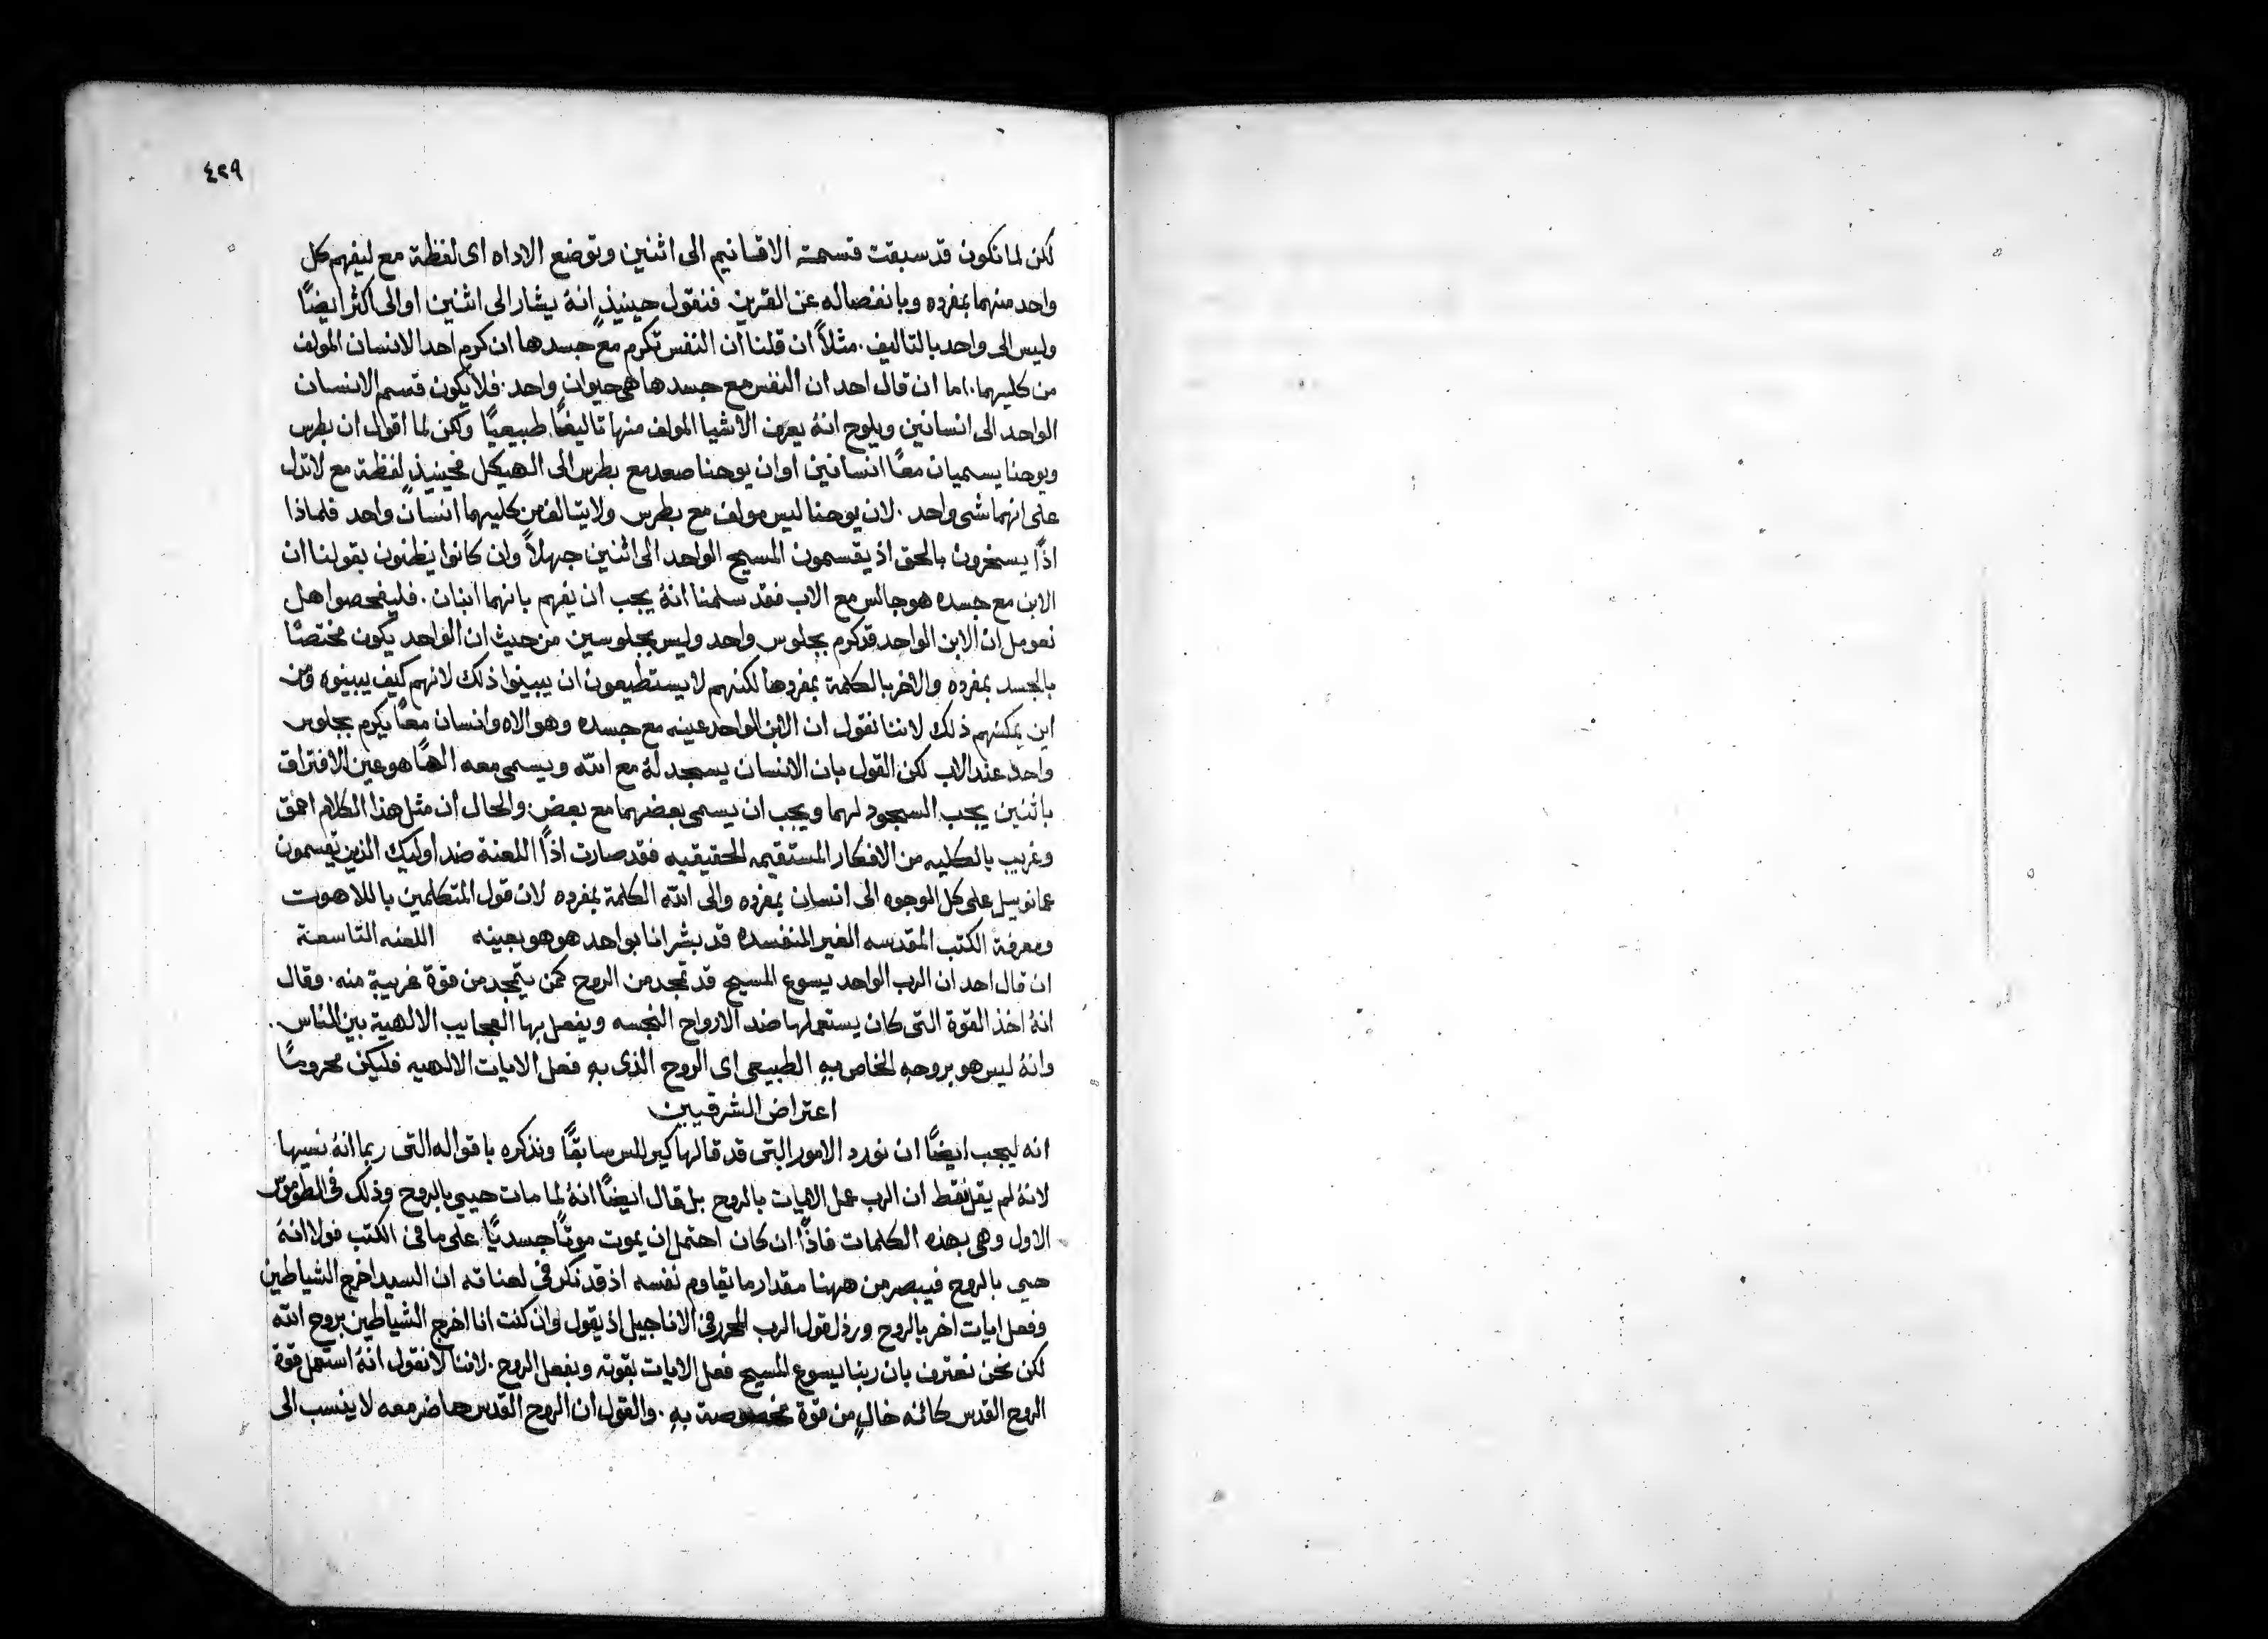 ٤٢٩
لكن لما تكون قد سبقت قسمة الاقانيم الى اثنين وتوضع الاداه اى لفظة مع ليفهم كل
واحد منهما بمفرده وبانفصاله عن القرين فنقول حينيذٍ انهُ يشار الى اثنين او الى اكثر ايضًا
وليس الى واحد بالتاليف . مثلاً ان قلنا ان النفس تكرم مع جسدها ان كرم احد الانسان المولف
من كليهما . اما ان قال احد ان النفس مع جسدها هى حيوان واحد . فلا يكون قسم الانسان
الواحد الى انسانين ويلوح انهُ يعرف الاشيا المولف منها تاليفًا طبيعيًا ولكن لما اقول ان بطرس
ويوحنا يسميان معًا انسانين او ان يوحنا صعد مع بطرس الى الهيكل فحينيذٍ لفظة مع لا تدل
على انهما شى واحد . لان يوحنا ليس مولف مع بطرس ولا يتالف من كليهما انسان واحد فلماذا
اذًا يسخرون بالحق اذ يقسمون المسيح الواحد الى اثنين جهلاً وان كانوا يظنون بقولنا ان
الابن مع جسده هو جالس مع الاب فقد سلمنا انهُ يجب ان يفهم بانهما ابنان . فليفحصوا هل
نعومل ان الابن الواحد قد كرم بجلوس واحد وليس بجلوسين من حيث ان الواحد يكون مختصًا
بالجسد بمفرده والاخر بالكلمة بمفردها لكنهم لا يستطيعون ان يبينوا ذلك لانهم كيف يبينوه ومن
اين يمكنهم ذلك لاننا نقول ان الابن الواحد عينه مع جسده وهو الاه وانسان معًا يكرم بجلوس
واحد عند الاب لكن القول بان الانسان يسجد لهُ مع الله ويسمى معه الهًا هو عين الافتراق
باثنين يجب السجود لهما ويجب ان يسمى بعضهما مع بعض . والحال ان مثل هذا الكلام احمق
وغريب بالكليه من الافكار المستقيمه الحقيقيه فقد صارت اذًا اللعنة ضد اوليك الذين يقسمون
عمانوييل على كل الوجوه الى انسان بمفرده والى الله الكلمة بمفرده لان قول المتكلمين باللاهوت
ومعرفة الكتب المقدسه الغير المنفسده قد بشرانا بواحد هو هو بعينه اللعنه التاسعة
ان قال احد ان الرب الواحد يسوع المسيح قد تمجد من الروح كمن يتمجد من قوة غريبة منه . وقال
انهُ اخذ القوة التى كان يستعملها ضد الارواح النجسه ويفعل بها العجايب الالهية بين الناس .
وانهُ ليس هو بروحهِ الخاص بهِ الطبيعى اى الروح الذى بهِ فعل الايات الالهيه فليكن محرومًا
اعتراض الشرقيين
انه ليجب ايضًا ان نورد الامور التى قد قالها كيرللس سابقًا ونذكره باقواله التى ربما انهُ نسيها
لانهُ لم يقل فقط ان الرب عمل الايات بالروح بل قال ايضًا انهُ لما مات حيي بالروح وذلك فى الطوموس
الاول وهى بهذه الكلمات فاذًا ان كان احتمل ان يموت موتًا جسديًا على ما فى الكتب فولا انهُ
حيى بالروح فيبصر من ههنا مقدار ما يقاوم نفسه اذ قد نكر فى لعناته ان السيد اخرج الشياطين
وفعل ايات اخر بالروح ورذل قول الرب المحرر فى الاناجيل اذ يقول وان كنت انا اخرج الشياطين بروح الله
لكن نحن نعترف بان ربنا يسوع المسيح فعل الايات بقوته وبفعل الروح . لاننا لا نقول انهُ استعمل قوة
الروح القدس كانه خالٍ من قوة مخصوصة بهِ . والقول ان الروح القدس حاضر معه لا ينسب الى